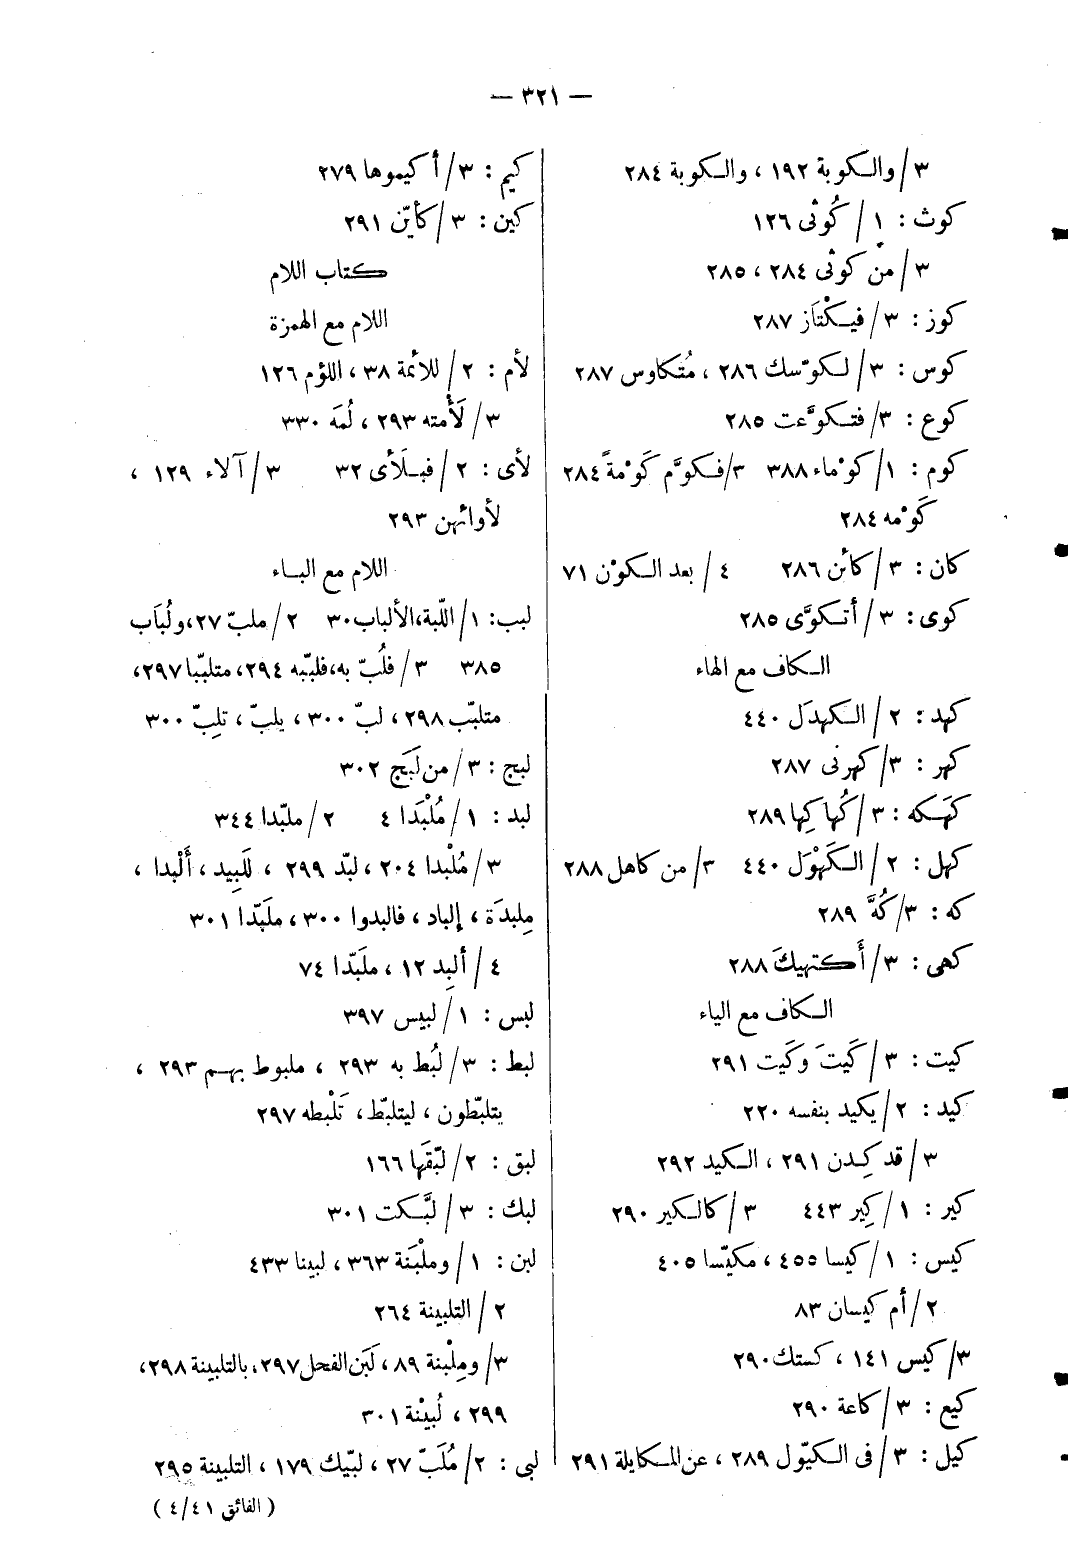 — ٣٢١ —
٣/ والكوبة ١٩٢ ، والكوبة ٢٨٤
كوث : ١/ كُوثى ١٢٦
٣/ من كوثى ٢٨٤ ، ٢٨٥
كوز : ٣/ فيكْتَاز ٢٨٧
كوس : ٣/ لكوّسك ٢٨٦ ، مُتكاوس ٢٨٧
كوع : ٣/ فتكوَّعت ٢٨٥
كوم : ١/ كوْماء ٣٨٨ ٣/ فكوَّم كَوْمةً ٢٨٤
كَوْمه ٢٨٤
كان : ٣/ كائن ٢٨٦ ٤/ بعد الكوْن ٧١
كوى : ٣/ أتكوَّى ٢٨٥
الكاف مع الهاء
كهد : ٢/ الكهدَل ٤٤٠
كهر : ٣/ كهرنى ٢٨٧
كهكه : ٣/ كُهاكِها ٢٨٩
كهل : ٢/ الكَهْوَل ٤٤٠ ٣/ من كاهل ٢٨٨
كه : ٣/ كُهَّ ٢٨٩
كهى : ٣/ أَكتهيكَ ٢٨٨
الكاف مع الياء
كيت : ٣/ كَيتَ وكَيت ٢٩١
كيد : ٢/ يكيد بنفسه ٢٢٠
٣/ قد كِدن ٢٩١ ، الكيد ٢٩٢
كير : ١/ كِير ٤٤٣ ٣/ كالكير ٢٩٠
كيس : ١/ كيسا ٤٥٥ ، مكيّسا ٤٠٥
٢/ أم كيسان ٨٣
٣/ كيس ١٤١ ، كستك ٢٩٠
كيع : ٣/ كاعة ٢٩٠
كيل : ٣/ فى الكيّول ٢٨٩ ، عن المكايلة ٢٩١
كيم : ٣/ أكيموها ٢٧٩
كين : ٣/ كأيّن ٢٩١
كتاب اللام
اللام مع الهمزة
لأم : ٢/ للأئمة ٣٨ ، اللؤم ١٢٦
٣/ لَأْمته ٢٩٣ ، لُمَه ٣٣٠
لأى : ٢/ فبلَأى ٣٢ ٣/ آلاء ١٢٩ ،
لأوائهن ٢٩٣
اللام مع الباء
لبب : ١/ اللّبة، الألباب ٣٠ ٢/ ملبّ ٢٧، ولُبَاب
٣٨٥ ٣/ فلُبّ به، فلبّبه ٢٩٤ ، متلببّا ٢٩٧،
متلبّب ٢٩٨ ، لبّ ٣٠٠ ، يلبّ ، تلِبّ ٣٠٠
لبج : ٣/ من لَبَج ٣٠٢
لبد : ١/ مُلْبَدا ٤ ٢/ ملبّدا ٣٤٤
٣/ مُلْبدا ٢٠٤ ، لبّد ٢٩٩ ، لَلَبِيد ، أَلْبدا ،
مِلبدَة ، إلباد ، فالبدوا ٣٠٠ ، ملَبّدا ٣٠١
٤/ ألبِد ١٢ ، ملَبّدا ٧٤
لبس : ١/ لبيس ٣٩٧
لبط : ٣/ لُبط به ٢٩٣ ، ملبوط بهم ٢٩٣ ،
يتلبّطون ، ليتلبّط ، تَلْبطه ٢٩٧
لبق : ٢/ لبّقَها ١٦٦
لبك : ٣/ لبَّكت ٣٠١
لبن : ١/ وملْبَنة ٣٦٣ ، لبينا ٤٣٣
٢/ التلبينة ٢٦٤
٣/ ومِلْبنة ٨٩ ، لَبَن الفحل ٢٩٧ ، بالتلبينة ٢٩٨ ،
٢٩٩ ، لُبيْنة ٣٠١
لبى : ٢/ مُلَبّ ٢٧ ، لبّيك ١٧٩ ، التلبينة ٢٩٥
( الفائق ٤١/ ٤ )